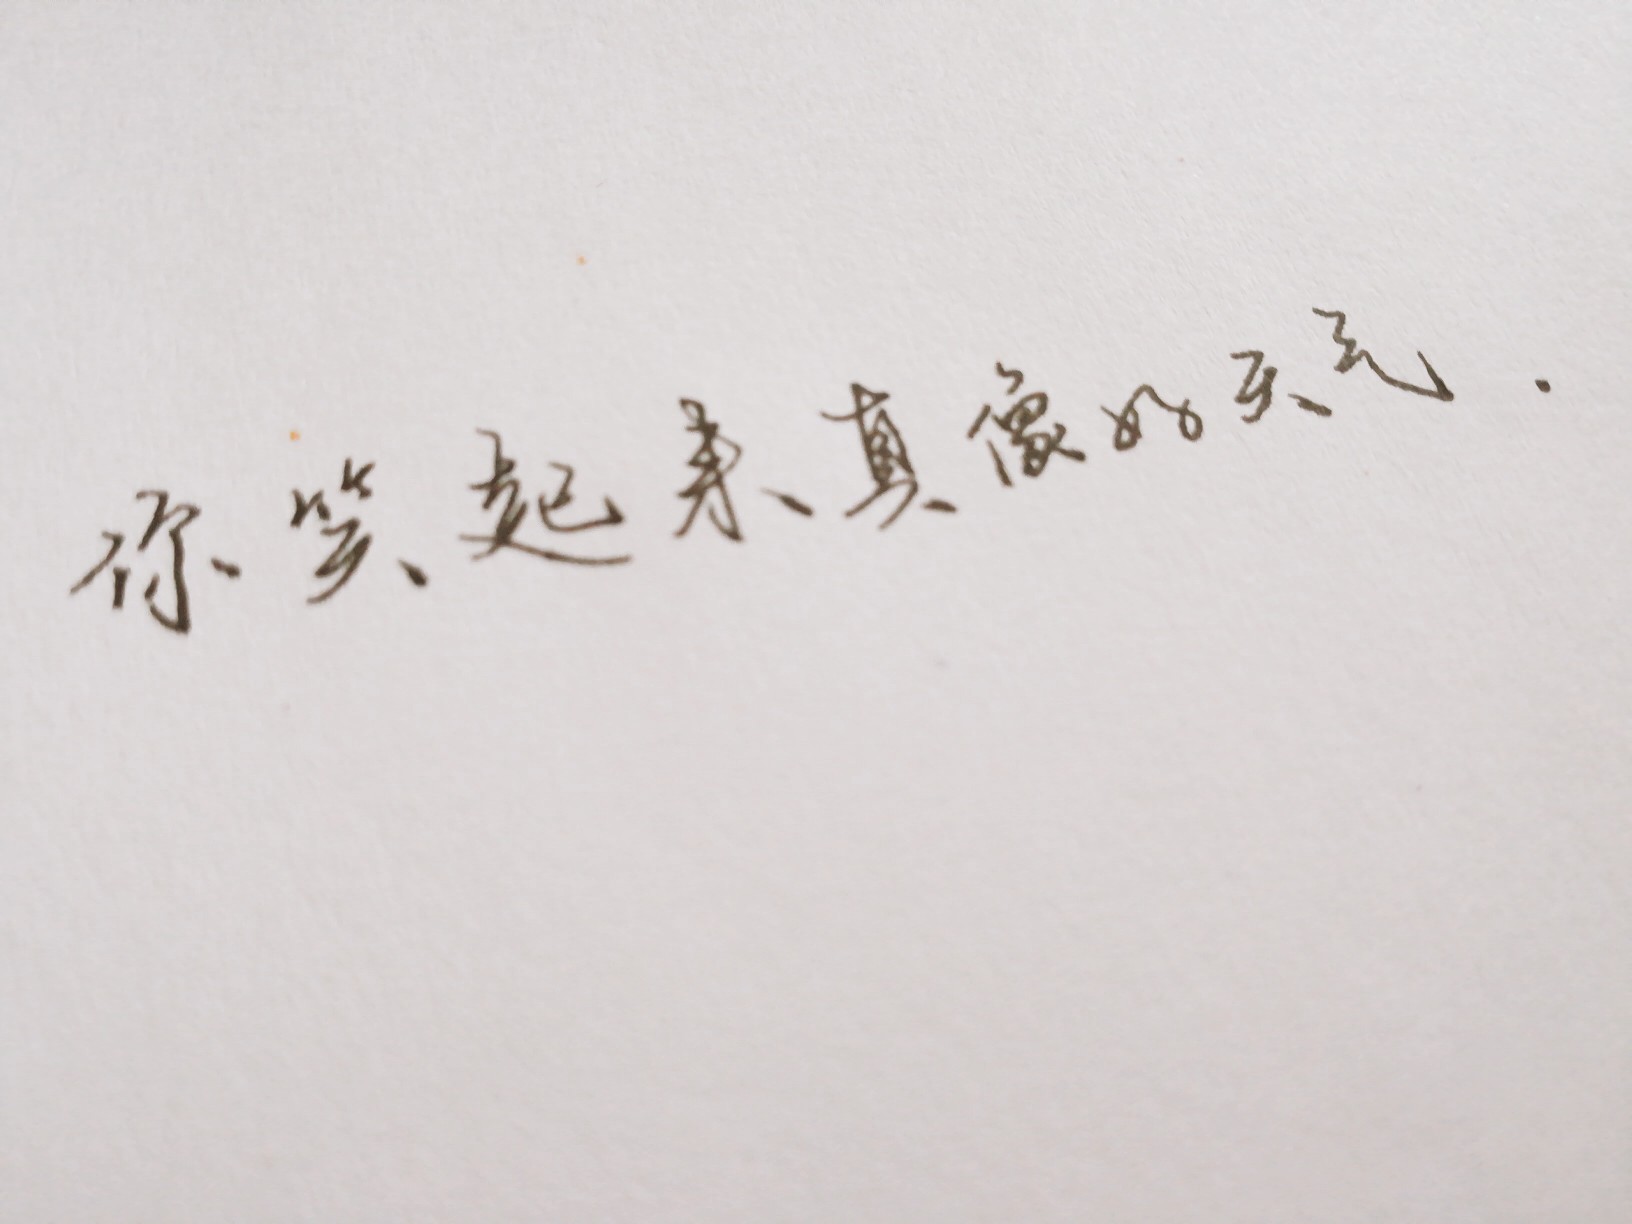 你笑起来真像好天气.